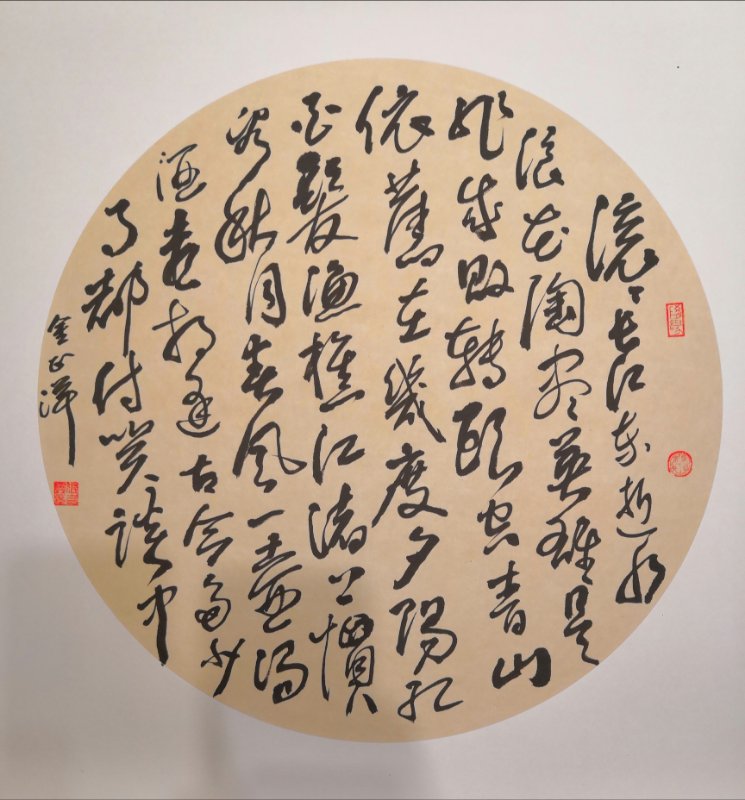 滚滚长江东逝水
浪花陶尽英雄是
非成败转头空青山
依舊在幾度夕陽红
白髮渔樵江渚上慣
看秋月春风一壶濁
酒喜相逢古今多少
事都付笑谈中
金正洋